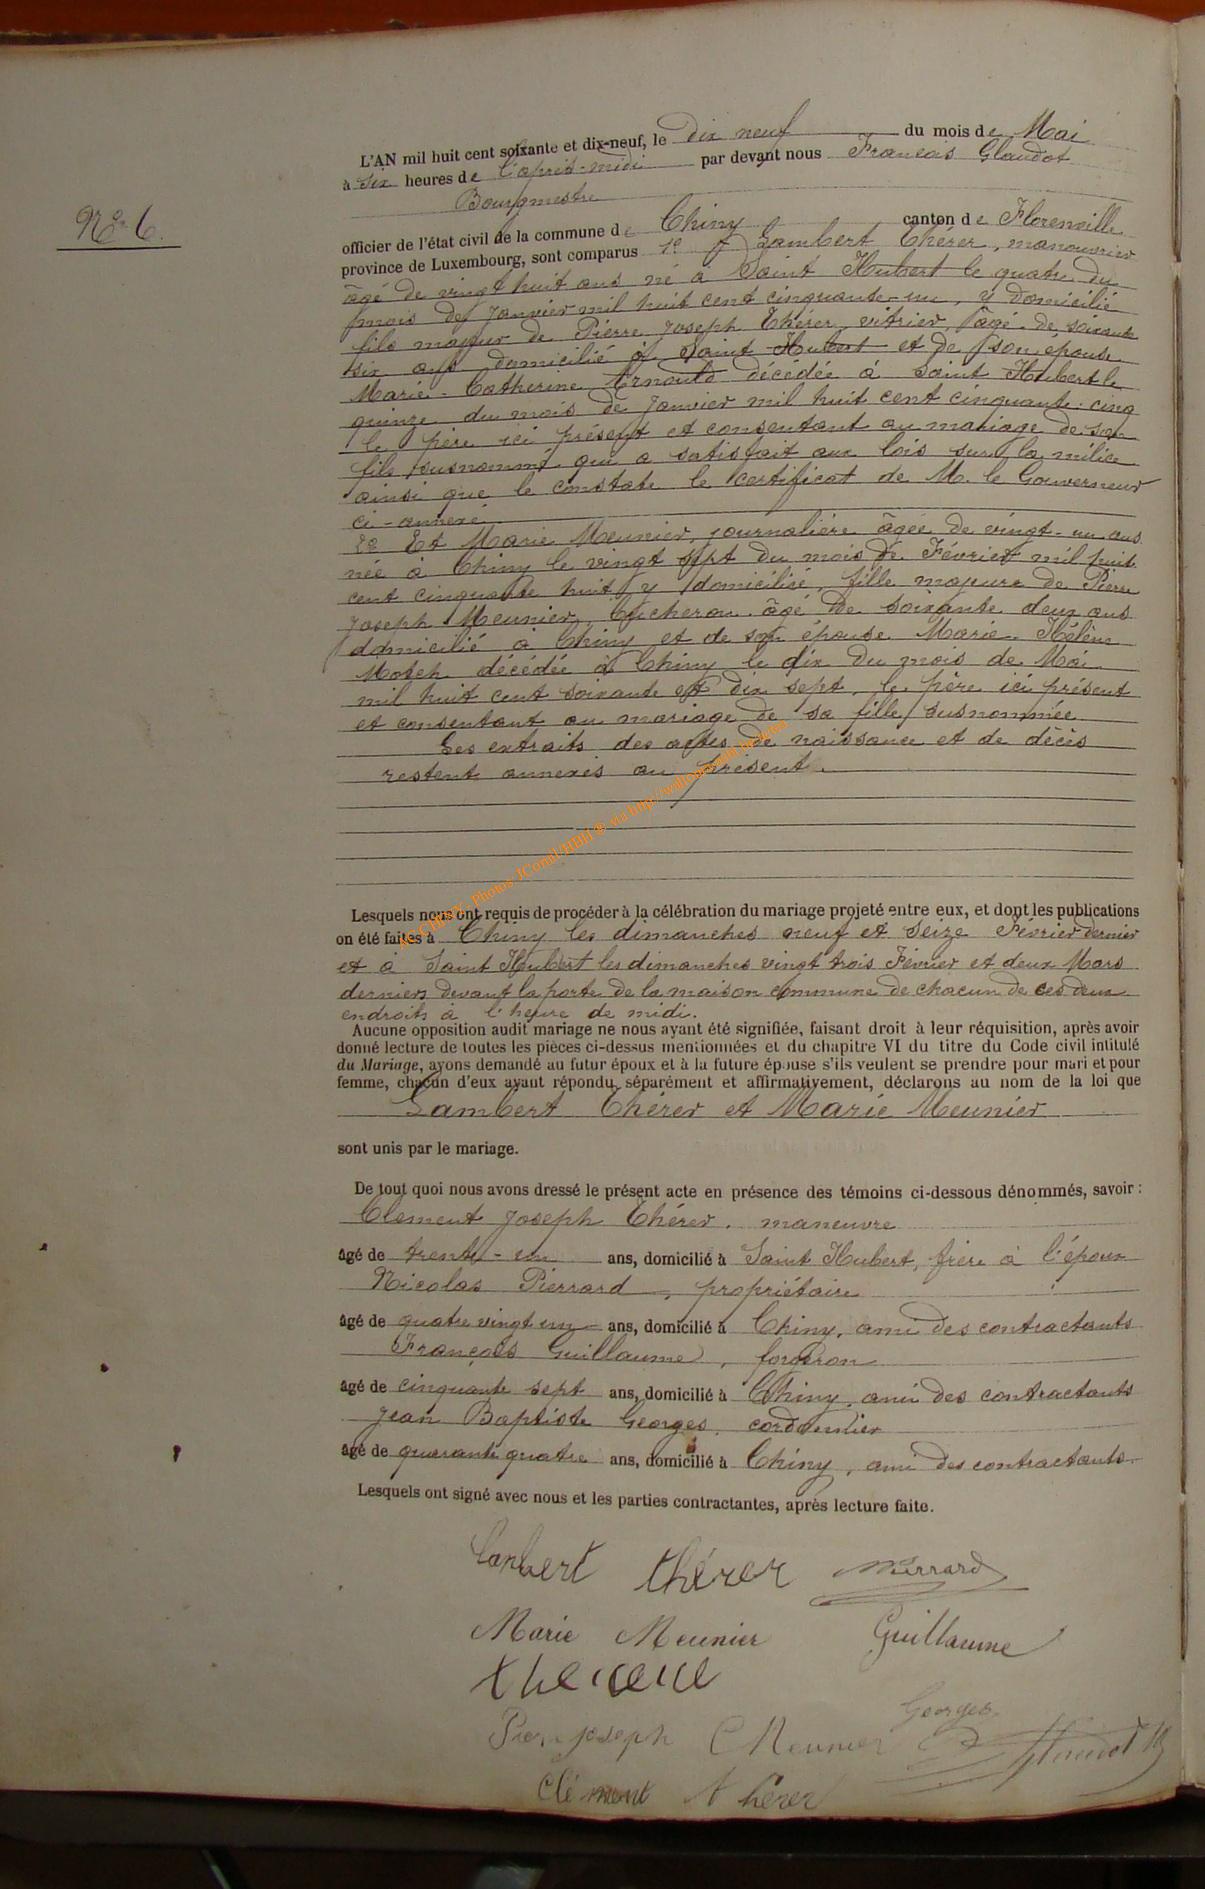 L'AN mil huit cent soixante et dix-neuf, le dix neuf du mois de Mai
à six heures de l'après-midi par devant nous François Glaudot
Bourgmestre
N° 6.
officier de l'état civil de la commune de Chiny canton de Florenville
province de Luxembourg, sont comparus 1° Lambert Thérer, manouvrier
âgé de vingt huit ans né à Saint Hubert le quatre du
mois de Janvier mil huit cent cinquante-un, y domicilié
fils majeur de Pierre Joseph Thérer, vitrier, âgé de soixante
six ans domicilié à Saint-Hubert et de son épouse
Marie-Catherine Arnould décédée à Saint Hubert le
quinze du mois de Janvier mil huit cent cinquante-cinq
le père ici présent et consentant au mariage de son
fils susnommé qui a satisfait aux lois sur la milice
ainsi que le constate le certificat de M. le Gouverneur
ci-annexé
2° Et Marie Meunier, journalière âgée de vingt-un ans
née à Chiny le vingt sept du mois de Février mil huit
cent cinquante huit y domiciliée, fille majeure de Pierre
Joseph Meunier, bûcheron âgé de soixante deux ans
domicilié à Chiny et de son épouse Marie Hélène
décédée à Chiny le dix du mois de Mai
mil huit cent soixante et dix sept, le père ici présent
et consentant au mariage de sa fille susnommée
Les extraits des actes de naissance et de décès
restent annexés au présent.
Lesquels nous ont requis de procéder à la célébration du mariage projeté entre eux, et dont les publications
on été faites à Chiny les dimanches neuf et seize Février dernier
et à Saint Hubert les dimanches vingt trois Février et deux Mars
derniers devant la porte de la maison commune de chacun de ces deux
endroits à l'heure de midi.
Aucune opposition audit mariage ne nous ayant été signifiée, faisant droit à leur réquisition, après avoir
donné lecture de toutes les pièces ci-dessus mentionnées et du chapitre VI du titre du Code civil intitulé
du Mariage, avons demandé au futur époux et à la future épouse s'ils veulent se prendre pour mari et pour
femme, chacun d'eux ayant répondu séparément et affirmativement, déclarons au nom de la loi que
Lambert Thérer et Marie Meunier
sont unis par le mariage.
De tout quoi nous avons dressé le présent acte en présence des témoins ci-dessous dénommés, savoir :
Clément Joseph Thérer, manœuvre
âgé de trente-un ans, domicilié à Saint Hubert, frère à l'époux
Nicolas Pierrard, propriétaire
âgé de quatre vingt un ans, domicilié à Chiny, ami des contractants
François Guillaume, forgeron
âgé de cinquante sept ans, domicilié à Chiny, ami des contractants
Jean Baptiste Georges, cordonnier
âgé de quarante quatre ans, domicilié à Chiny, ami des contractants
Lesquels ont signé avec nous et les parties contractantes, après lecture faite.
Lambert thérer Pierrard
Marie Meunier Guillaume
Georges
Pierre joseph Meunier Glaudot
Clément thérer